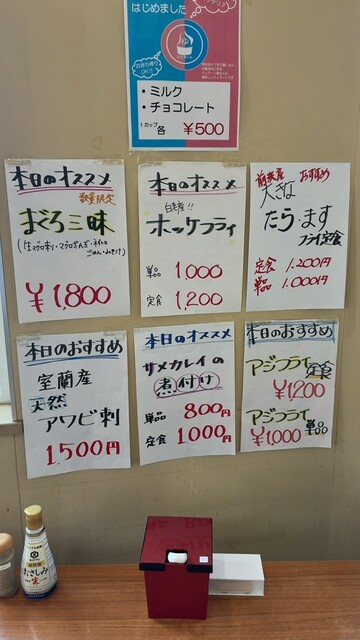 はじめました
お持ち帰り
OK!!
・ミルク
・チョコレート
1カップ 各 ¥500
本日のオススメ
数量限定
まぐろ三昧
¥1,800
本日のオススメ
白老産!!
ホッケフライ
単品 1,000
定食 1,200
おすすめ
大きな
たら・ます
フライ定食
定食 1,200円
単品 1,000円
本日のおすすめ
室蘭産
天然
アワビ刺
1,500円
本日のオススメ
サメカレイの
煮付け
単品 800円
定食 1000円
本日のおすすめ
アジフライ定食
¥1,200
アジフライ
¥1,000 単品
おさしみ